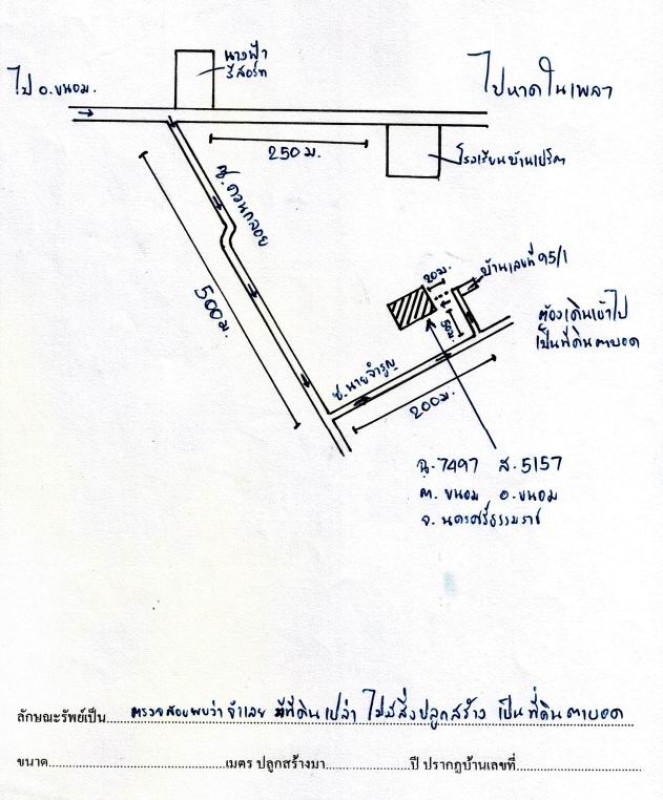 นางฟ้า
รีสอร์ท
ไป อ.ขนอม.
ไปหาดในเพลา
250 ม.
โรงเรียนบ้านเปร็ต
ซ.ควนกลอย
500 ม.
20 ม.
บ้านเลขที่ 95/1
50 ม.
ต้องเดินเข้าไป
เป็นที่ดินตาบอด
ซ.นายจำรูญ
200 ม.
ฉ.7497 ส.5157
ต.ขนอม อ.ขนอม
จ.นครศรีธรรมราช
ลักษณะทรัพย์เป็น ตรวจสอบพบว่าจำเลย มีที่ดินเปล่า ไม่มีสิ่งปลูกสร้าง เป็นที่ดินตาบอด
ขนาด เมตร ปลูกสร้างมา ปี ปรากฏบ้านเลขที่